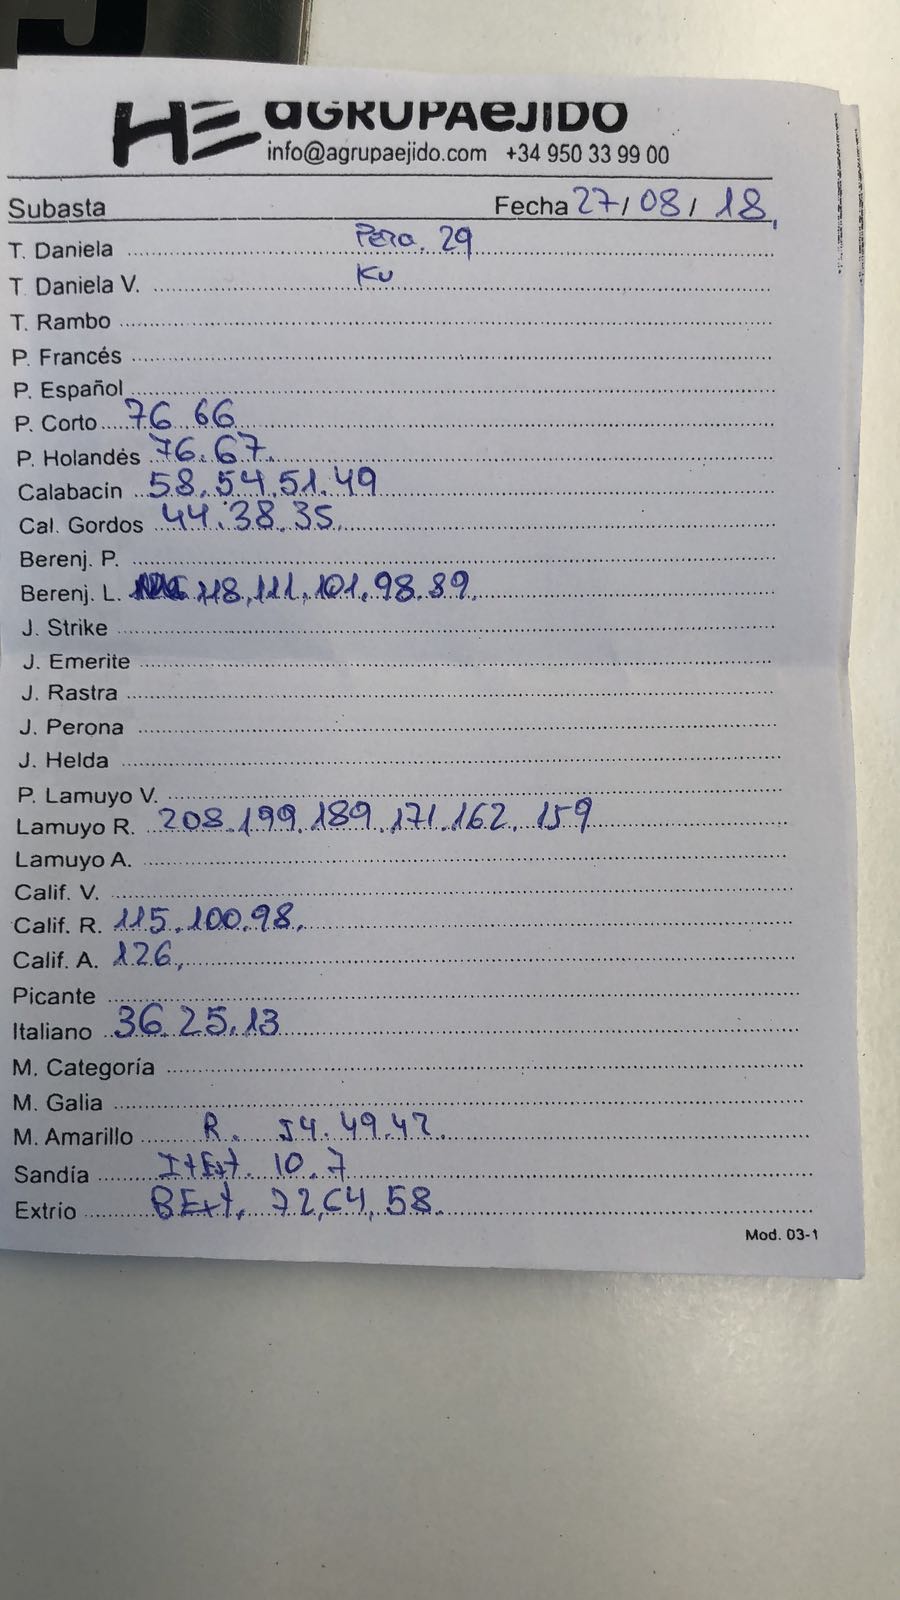 HE aGRUPAeJIDO
info@agrupaejido.com +34 950 33 99 00
Subasta Fecha 27/08/18,
T. Daniela Pera. 29
T Daniela V. Ku
T. Rambo
P. Francés
P. Español
P. Corto 76 66
P. Holandés 76.67.
Calabacín 58.54.51.49
Cal. Gordos 44.38.35.
Berenj. P.
Berenj. L. 118,111,101.98.89.
J. Strike
J. Emerite
J. Rastra
J. Perona
J. Helda
P. Lamuyo V.
Lamuyo R. 208.199.189.171.162.159
Lamuyo A.
Calif. V.
Calif. R. 115.100.98.
Calif. A. 126,
Picante
Italiano 36.25.13
M. Categoría
M. Galia
M. Amarillo R. 54.49.47.
Sandía I+Ext. 10.7
Extrio BExt. 72,64,58.
Mod. 03-1